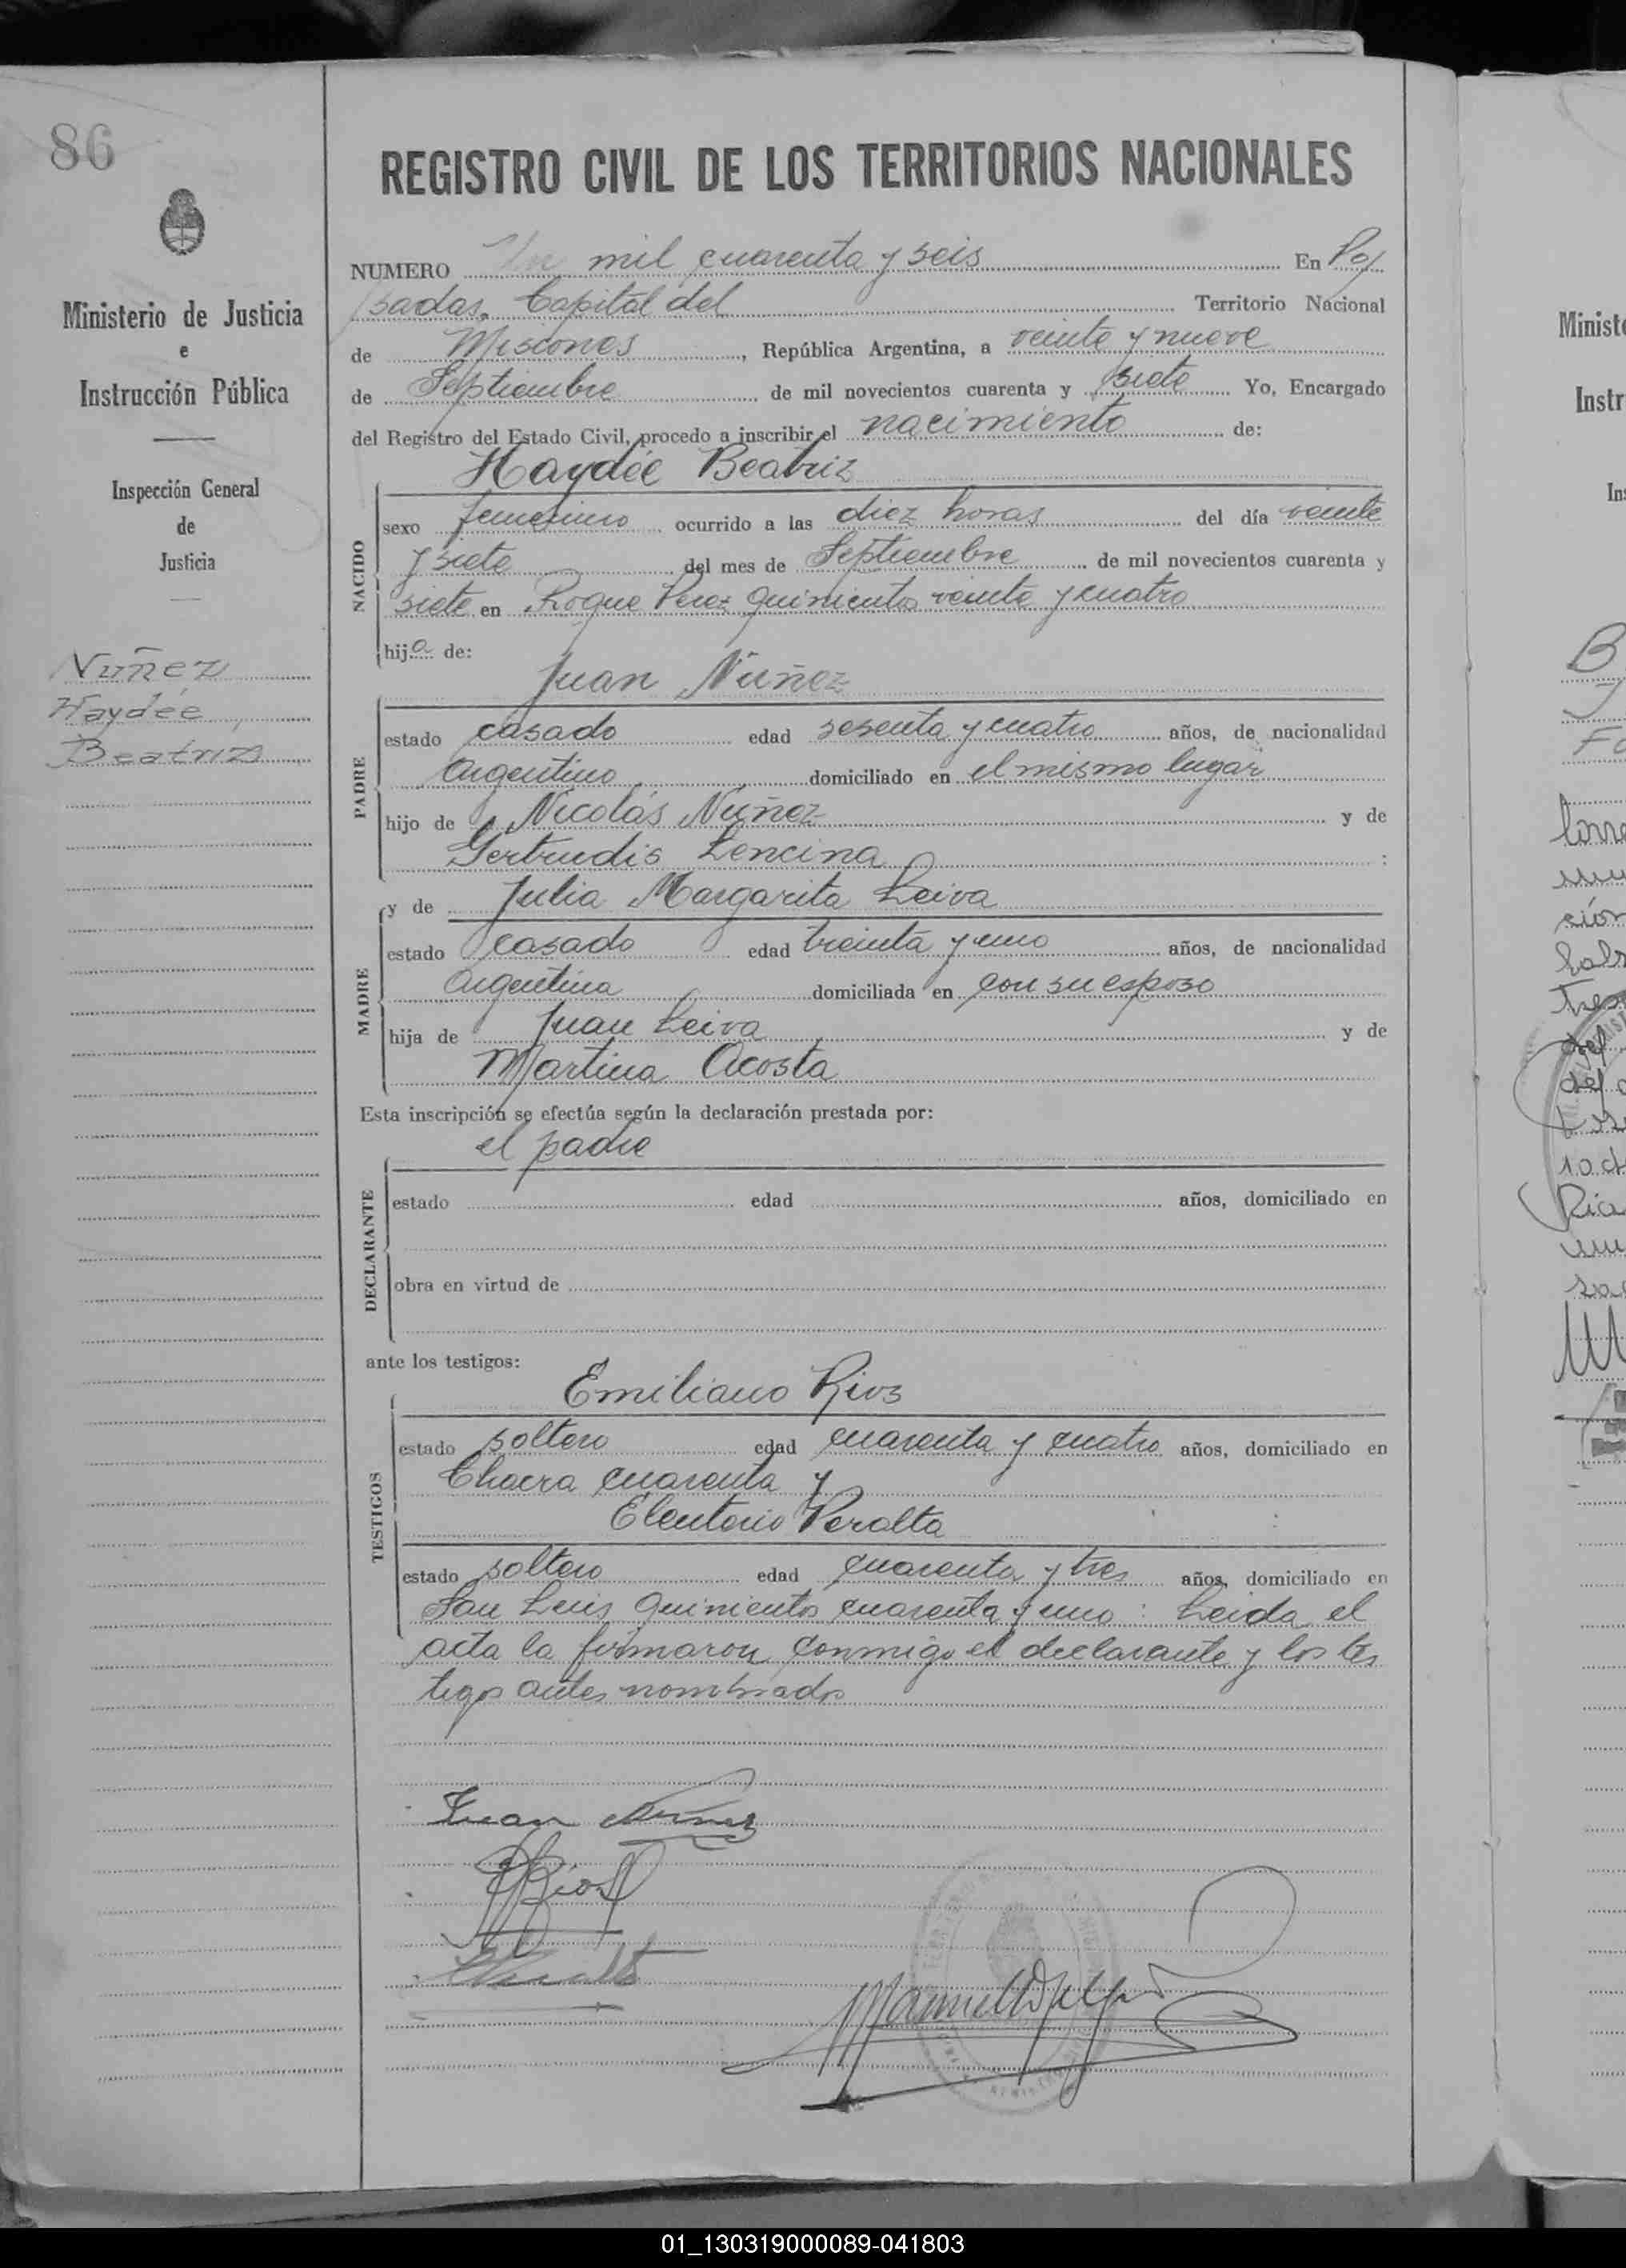 86
REGISTRO CIVIL DE LOS TERRITORIOS NACIONALES
Ministerio de Justicia
e
Instrucción Pública
Inspección General
de
Justicia
Nuñez
Haydée
Beatriz
NUMERO Un mil cuarenta y seis En Po/
sadas, Capital del Territorio Nacional
de Misiones, República Argentina, a veinte y nueve
de Septiembre de mil novecientos cuarenta y siete Yo, Encargado
del Registro del Estado Civil, procedo a inscribir el nacimiento de:
Haydée Beatriz
NACIDO
sexo femenino ocurrido a las diez horas del día veinte
y siete del mes de Septiembre de mil novecientos cuarenta y
siete en Roque Perez quinientos veinte y cuatro
hija de:
Juan Nuñez
PADRE
estado casado edad sesenta y cuatro años, de nacionalidad
Argentino domiciliado en el mismo lugar
hijo de Nicolás Nuñez y de
Gertrudis Lencina :
y de Julia Margarita Leiva
MADRE
estado casado edad treinta y uno años, de nacionalidad
Argentina domiciliada en con su esposo
hija de Juan Leiva y de
Martina Acosta
Esta inscripción se efectúa según la declaración prestada por:
el padre
DECLARANTE
estado edad años, domiciliado en
obra en virtud de
ante los testigos:
Emiliano Rios
TESTIGOS
estado soltero edad cuarenta y cuatro años, domiciliado en
Chacra cuarenta y
Eleuterio Peralta
estado soltero edad cuarenta y tres años, domiciliado en
San Luis quinientos cuarenta y uno : Leida el
acta la firmaron conmigo el declarante y los tes
tigos antes nombrados
Juan Nuñez
ERios
01_130319000089-041803